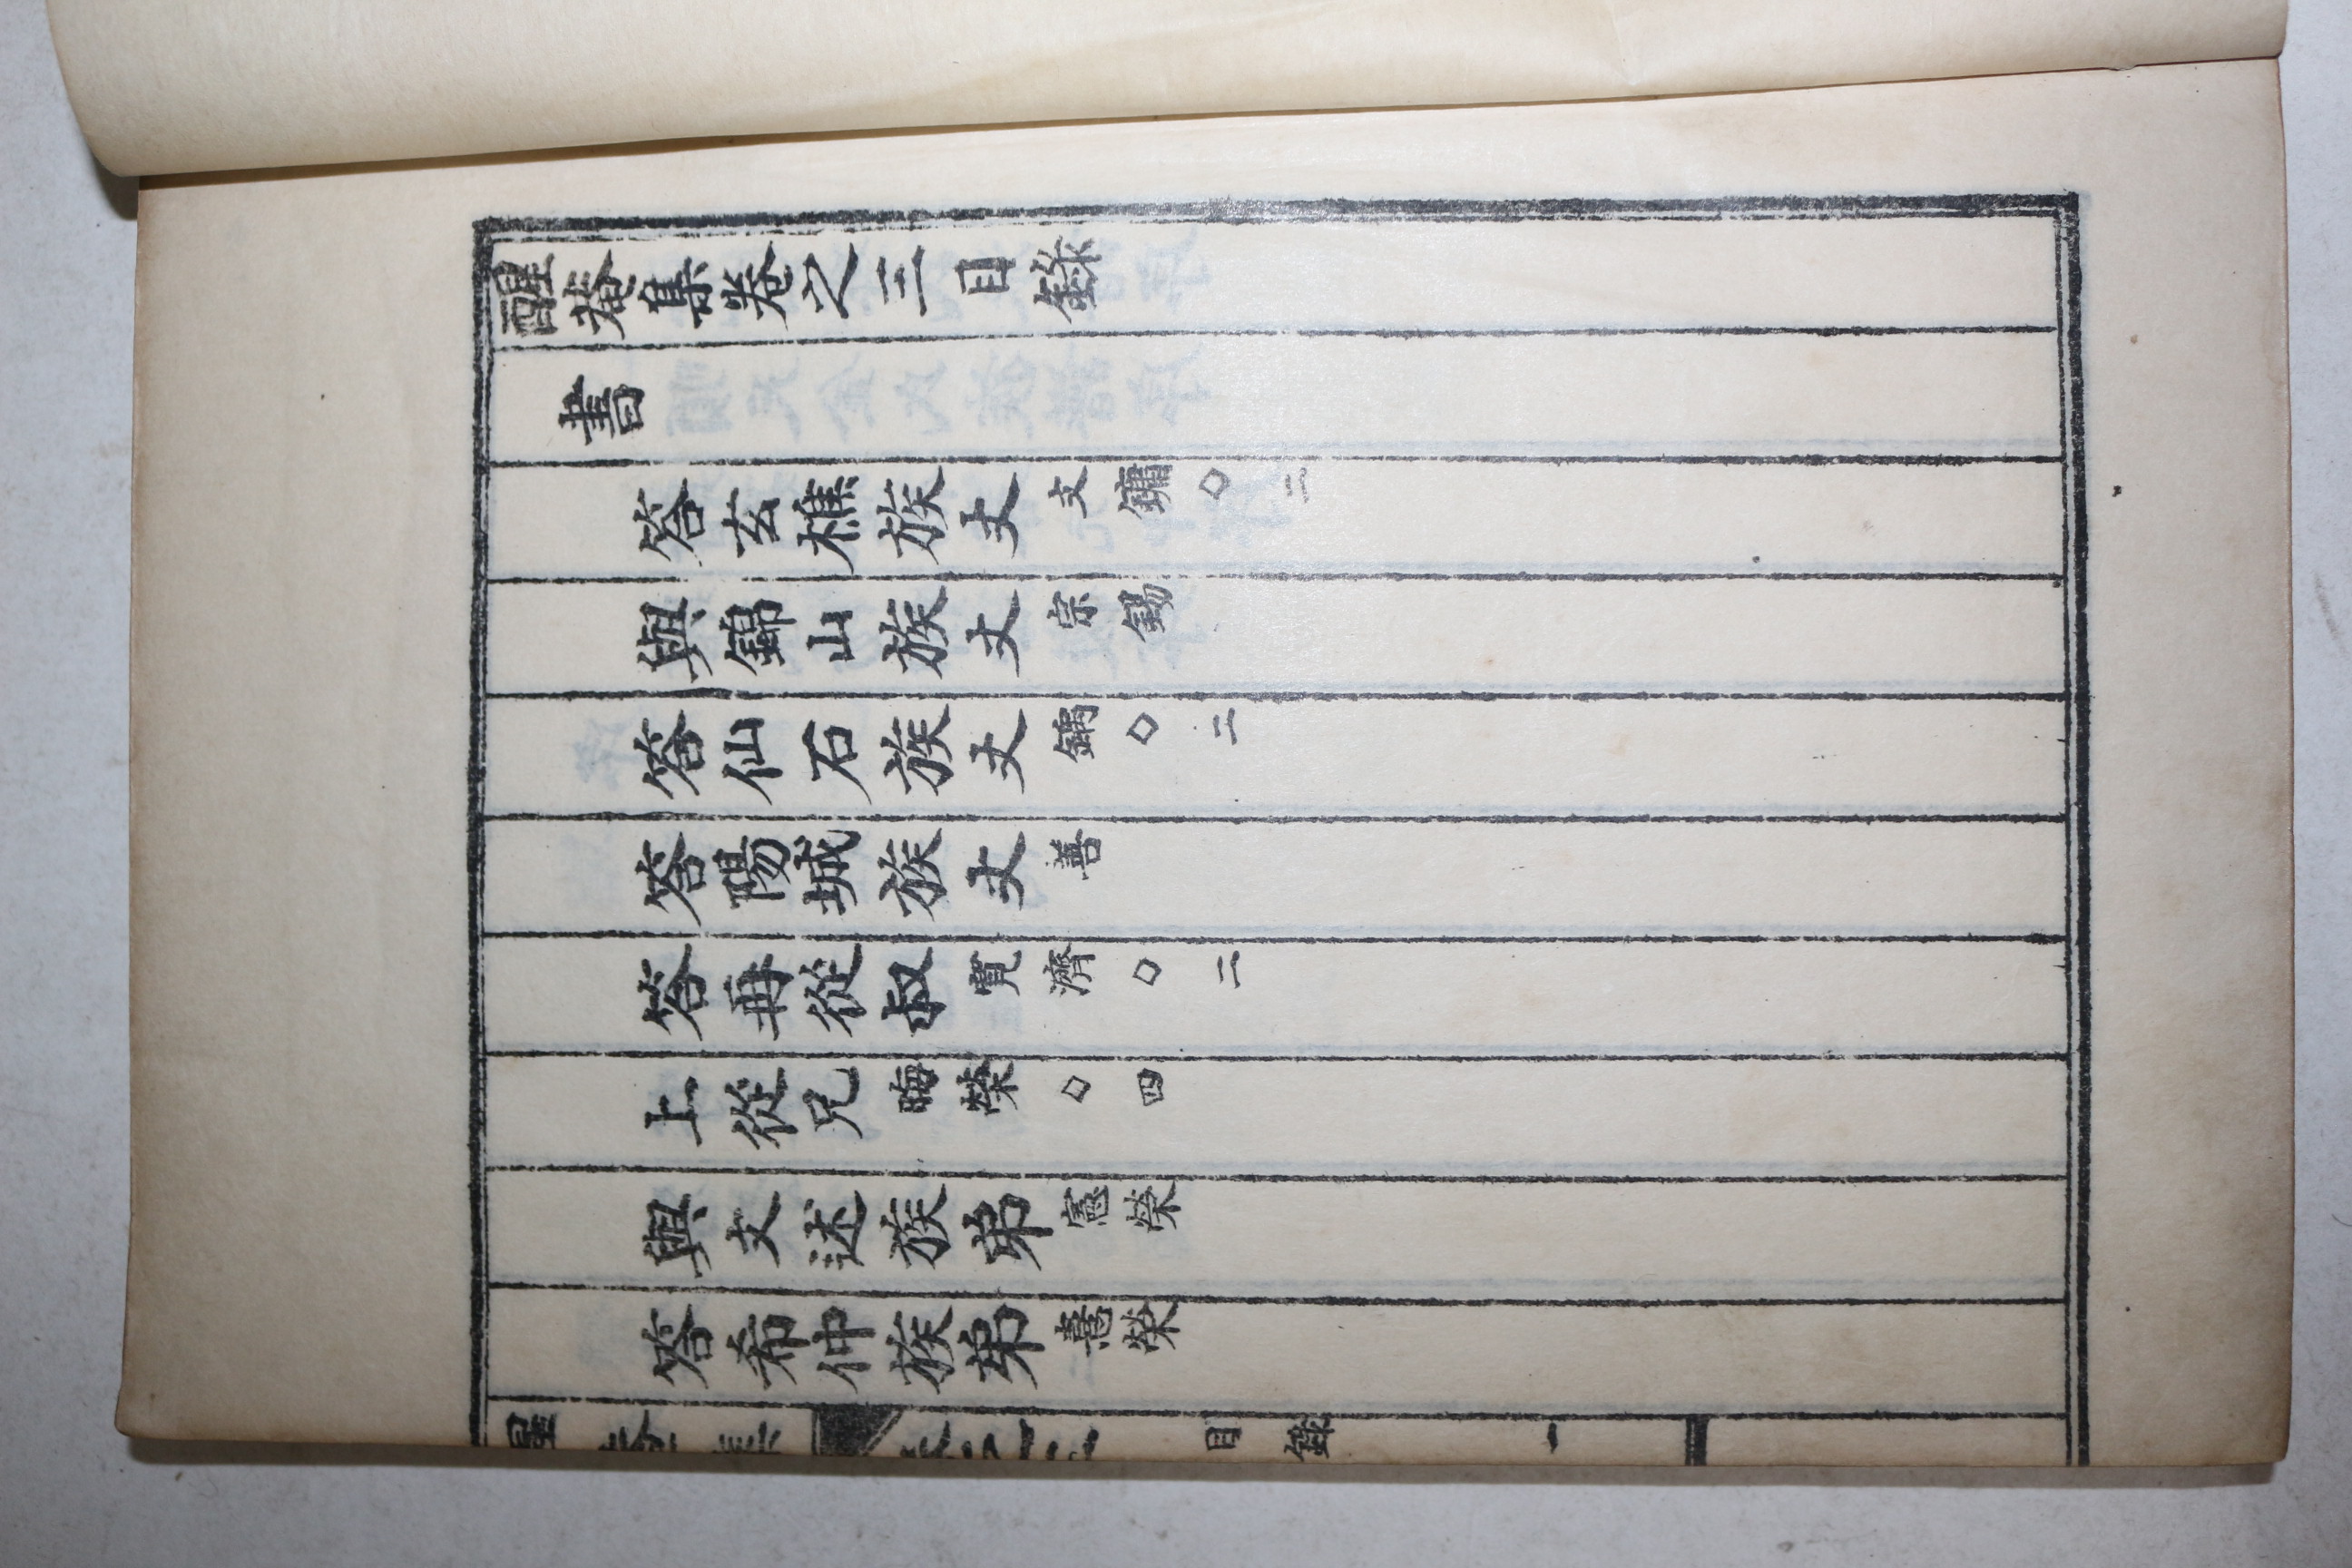 醒菴集卷之三目錄
書
答玄樵族丈文鏞◇二
與錦山族丈宗錫
答仙石族丈鎬◇二
答陽城族丈善
答再從叔寬濟◇二
上從兄晦榮◇四
與文述族弟憲榮
答希仲族弟憙榮
目錄 一